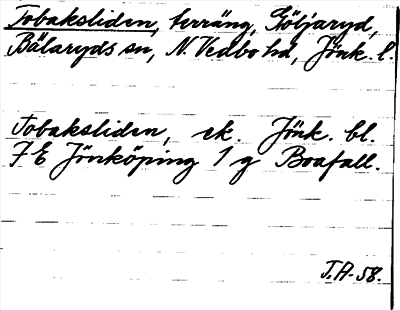 Tobaksliden, terräng, Stöljaryd,
Bälaryds sn, N. Vedbo hd, Jönk. l.
Tobaksliden, ek. Jönk. bl.
7 E Jönköping 1 g Boafall.
J.A-58.